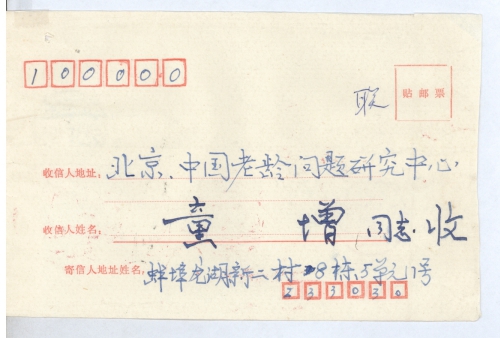 100000
联
贴邮票
收信人地址：北京、中国老龄问题研究中心
收信人姓名：童增 同志收
寄信人地址姓名：蚌埠龙湖新二村28栋5单元1号
233030